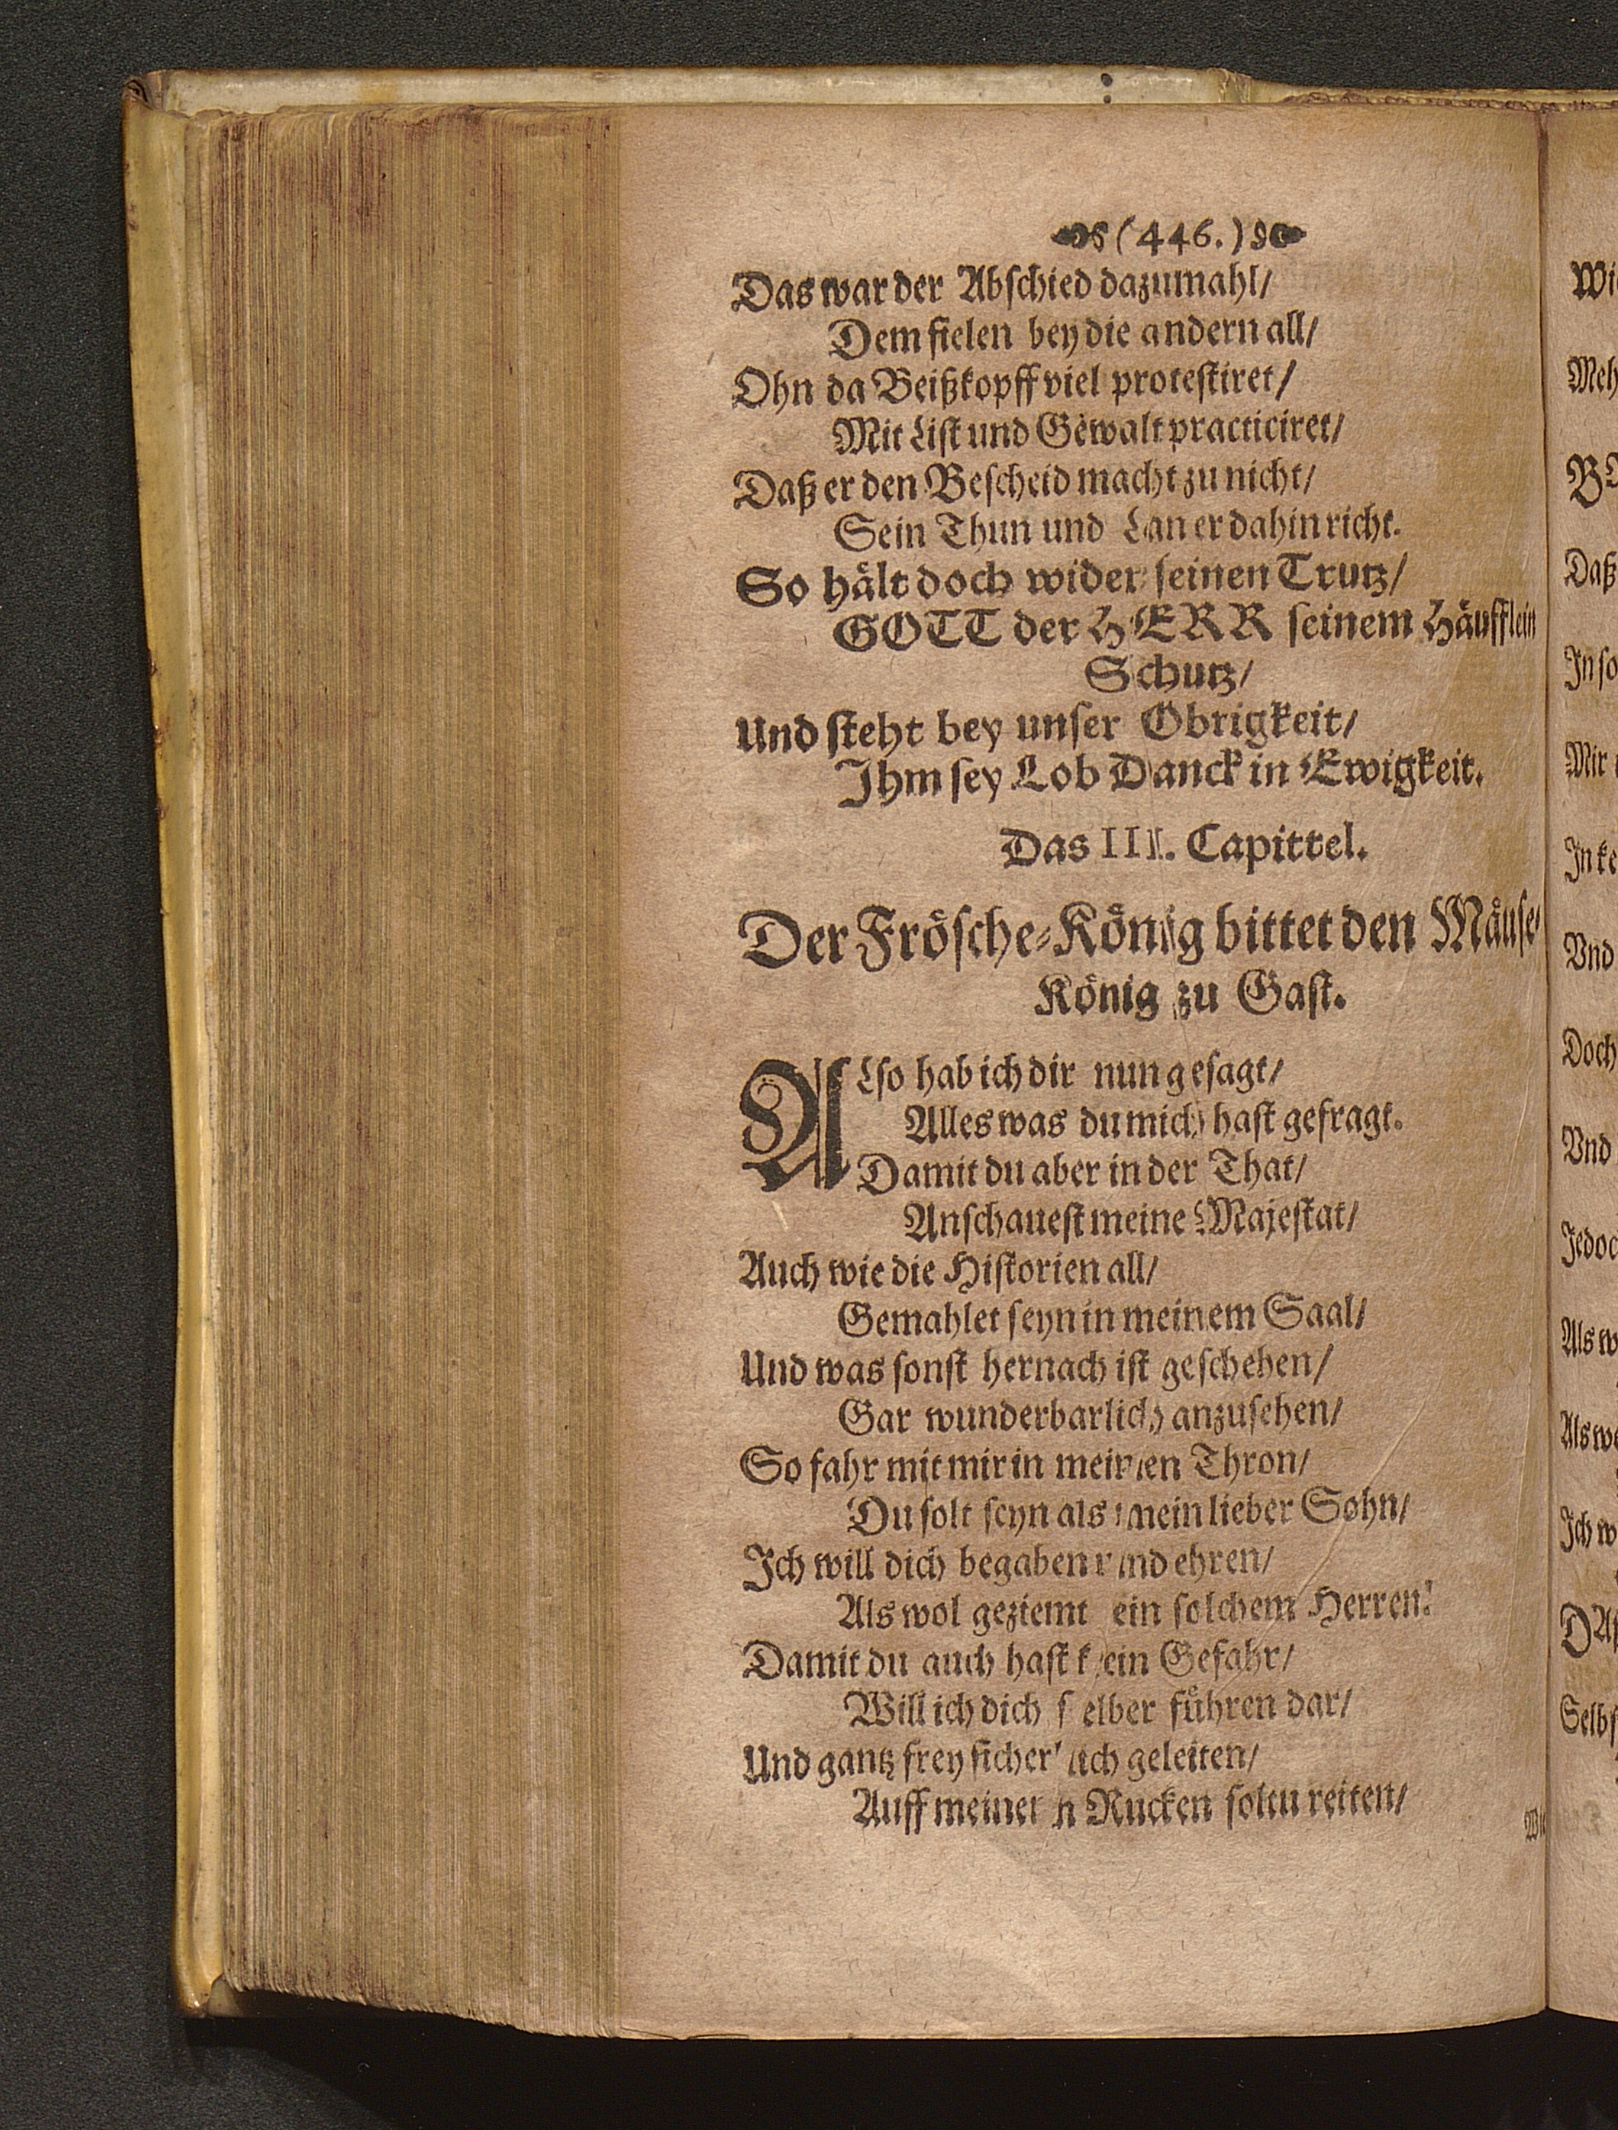 (446.)
Das war der Abschied dazumahl/
Dem fielen bey die andern all/
Ohn da Beißkopff viel protestiret/
Mit List und Gewalt practiciret/
Daß er den Bescheid macht zu nicht/
Sein Thun und Lan er dahin richt.
So hält doch wider seinen Trutz/
GOTT der HERR seinem Häufflein
Schutz/
Und steht bey unser Obrigkeit/
Ihm sey Lob Danck in Ewigkeit.
Das III. Capittel.
Der Frösche-König bittet den Mäuse-
König zu Gast.
ALso hab ich dir nun gesagt/
Alles was du mich hast gefragt.
Damit du aber in der That/
Anschauest meine Majestat/
Auch wie die Historien all/
Gemahlet seyn in meinem Saal/
Und was sonst hernach ist geschehen/
Gar wunderbarlich anzusehen/
So fahr mit mir in meinen Thron/
Du solt seyn als mein lieber Sohn/
Ich will dich begaben und ehren/
Als wol geziemt ein solchem Herren!
Damit du auch hast kein Gefahr/
Will ich dich selber führen dar/
Und gantz frey sicherlich geleiten/
Auff meinen Rucken soltu reiten/
Wi
Meh
Daß
In so
Mir
In ke
Vnd
Doch
Vnd
Jedoc
Als w
Als we
Ich w
Selbs